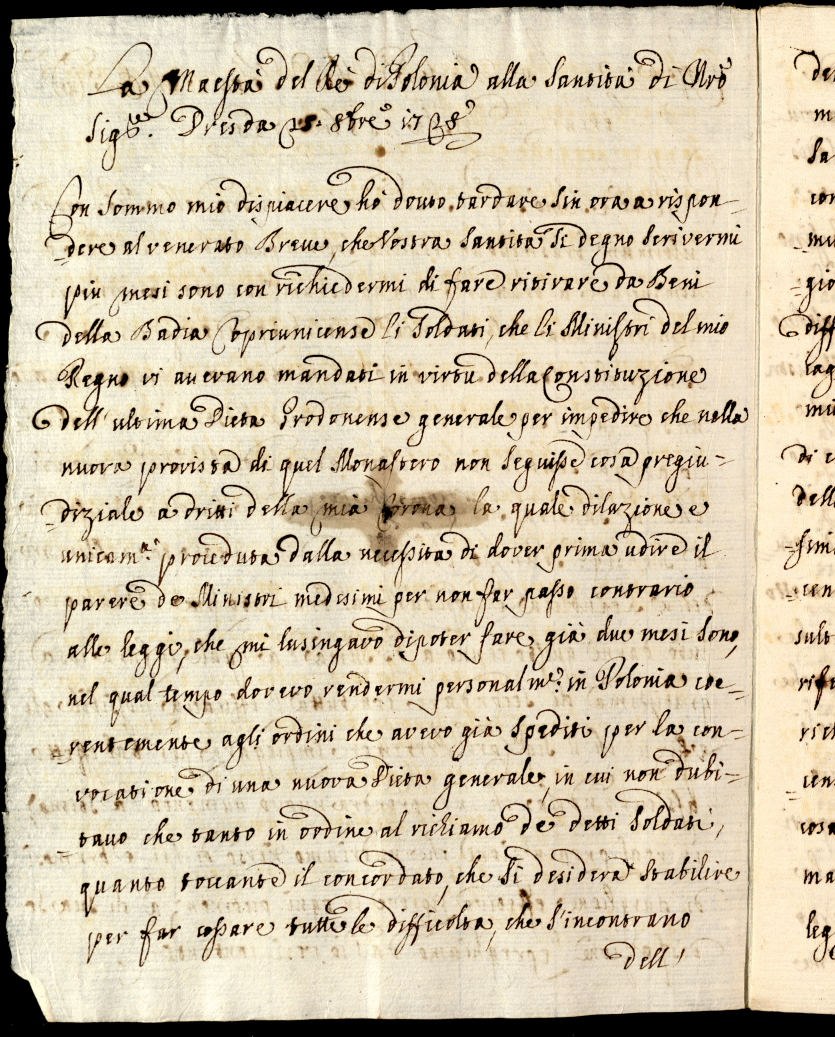 La Maestà del Rè di Polonia alla Santità di Nro
Sigre. Dresda 25. 8bre 1728
Con sommo mio dispiacere hò douto tardare sin ora a rispon-
dere al venerato Breve, che Vostra Santità si degno scrivermi
più mesi sono con richiedermi di fare ritirare da Beni
della Badia Copriunicense li Soldati, che li Ministri del mio
Regno vi avevano mandati in virtù della Constituzione
dell' ultima Dieta Grodonense generale per impedire che nella
nuova provista di quel Monastero non seguisse cosa pregiu-
diziale a dritti della mia Corona, la quale dilazione e
unicamte. proceduta dalla necessità di dover prima udire il
parere de Ministri medesimi per non far passo contrario
alle leggi, che mi lusingavo di poter fare già due mesi sono,
nel qual tempo dovevo rendermi personalmte. in Polonia coe-
rentemente agli ordini che avevo già spediti per la con-
vocatione di una nuova Dieta generale, in cui non dubi-
tavo che tanto in ordine al richiamo de detti Soldati,
quanto toccante il concordato, che si desidera stabilire
per far cessare tutte le difficoltà, che s'incontrano
dell'
de
m
Sa
con
mu
gio
diff
cag
mi
di
dell
sim
cen
sult
rife
rich
cen
cosa
ma
leg